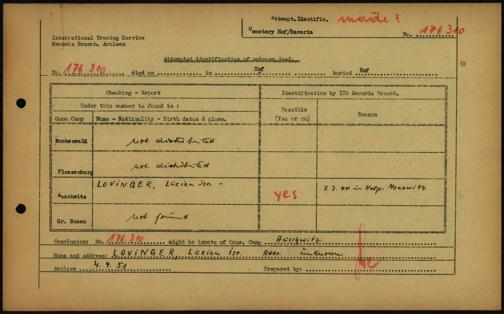 Attempt.Identific. made?
Cemetery Hof/Bavaria
No. 176 310
International Tracing Service
Records Branch, Arolsen
Attempted identification of unknown dead.
No. 176 310 died on in Hof buried Hof
Checking - Report
Identification by ITS Records Branch.
Under this number is found in :
Possible
(Yes or no)
Reason
Conc.Camp Name - Nationality - Birth dates & place.
Buchenwald not distributed
Flossenburg not distributed
Auschwitz LOVINGER, Lucien Isr. - yes 7.7.44 in Hosp. Monowitz
Gr. Rosen not found
Conclusion: No. 176 310 might be inmate of Conc. Camp Auschwitz
Name and address: LOVINGER, Lucien Isr. Adr. unknown
Arolsen 4.4.51 Prepared by: